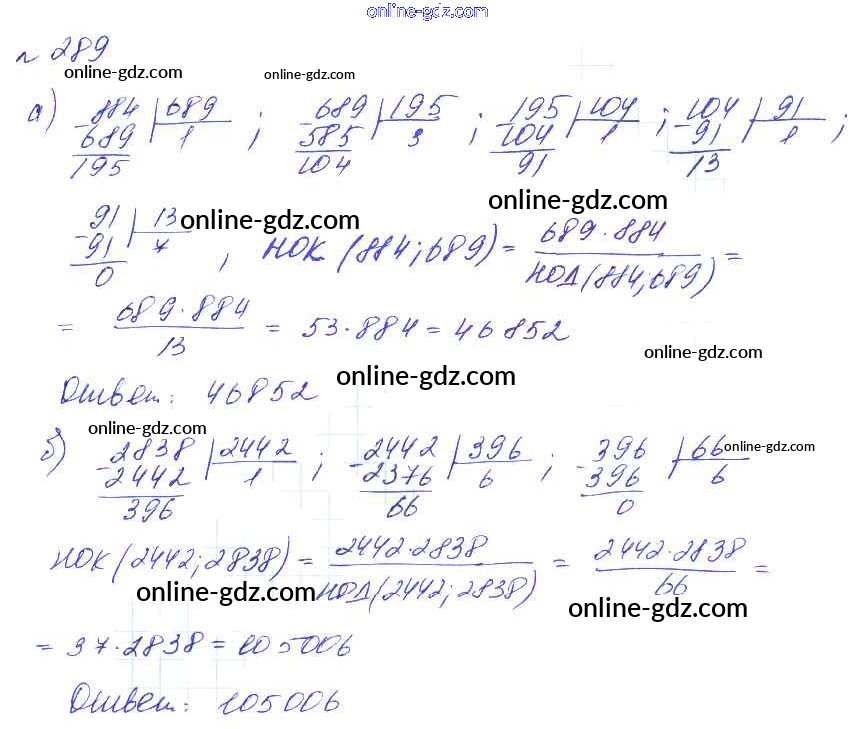 online-gdz.com
№ 289
online-gdz.com online-gdz.com
а) 884 | 689 ; 689 | 195 ; 195 | 104 ; 104 | 91 ;
- 689 | 1 - 585 | 3 - 104 | 1 - 91 | 1
195 104 91 13
online-gdz.com
91 | 13 online-gdz.com
- 91 | 7 , НОК (884; 689) = 689·884 / НОД(884; 689) =
0
= 689·884 / 13 = 53·884 = 46852
online-gdz.com
Ответ: 46852 online-gdz.com
online-gdz.com
б) 2838 | 2442 ; 2442 | 396 ; 396 | 66 online-gdz.com
- 2442 | 1 - 2376 | 6 - 396 | 6
396 66 0
НОК (2442; 2838) = 2442·2838 / НОД(2442; 2838) = 2442·2838 / 66 =
online-gdz.com online-gdz.com
= 37·2838 = 105006
Ответ: 105006